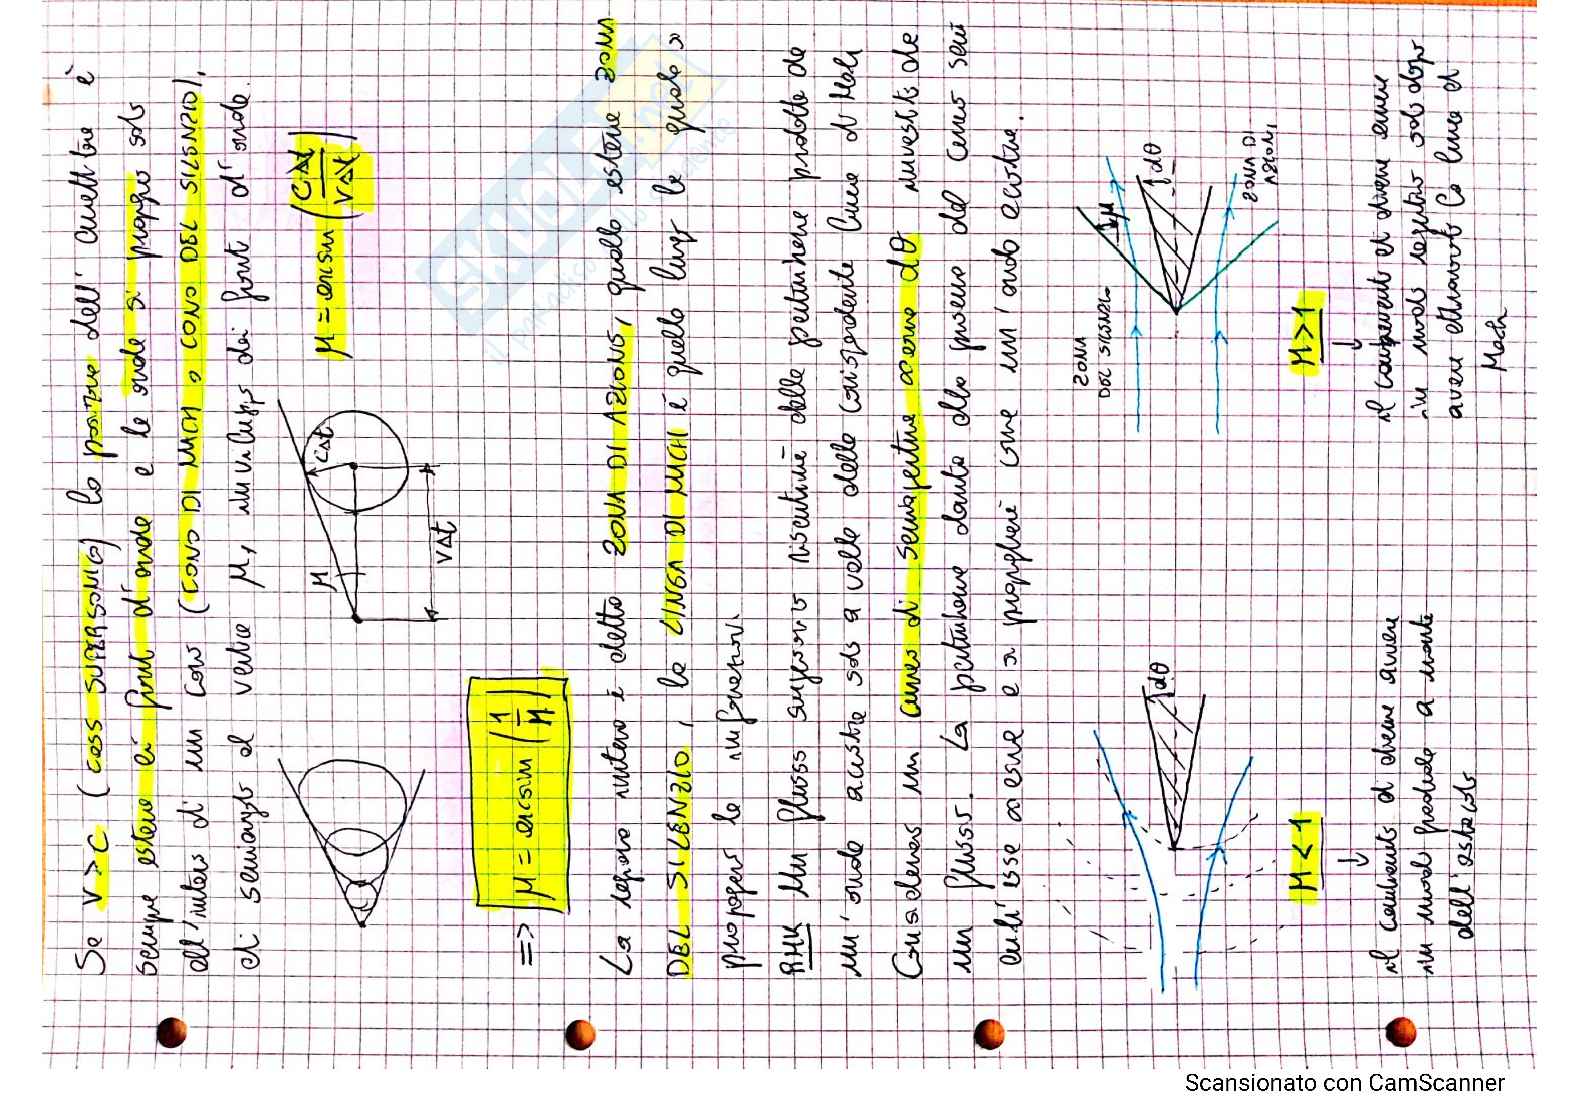 Se V > C (CASO SUPERSONICO) la posizione dell' emettitore è
sempre esterna ai fronti d'onda e le onde si propagano solo
all'interno di un cono (CONO DI MACH, o CONO DEL SILENZIO),
di semiangolo al vertice μ, inviluppo dei fronti d'onda.
μ
CΔt
VΔt
μ = arcsin (CΔt / VΔt)
=> μ = arcsin (1/M)
La regione interna è detta ZONA DI AZIONE, quella esterna ZONA
DEL SILENZIO, la LINEA DI MACH è quella lungo la quale si
propagano le informazioni.
RMK Un flusso supersonico risentirà delle perturbazioni prodotte da
un'onda acustica solo a valle della corrispondente linea di Mach
Consideriamo un cuneo di semiapertura dθ investito da
un flusso. La perturbazione dovuta alla presenza del cuneo sarà
anch'essa e si propagherà come un'onda acustica.
dθ
M < 1
↓
il cambiamento di direzione avviene
in modo graduale a monte
dell'ostacolo
ZONA
DEL SILENZIO
μ
dθ
ZONA DI
AZIONE
M > 1
↓
il cambiamento di direzione avviene
in modo repentino solo dopo
avere attraversato la linea di
Mach
SKUOLA.net
Scansionato con CamScanner